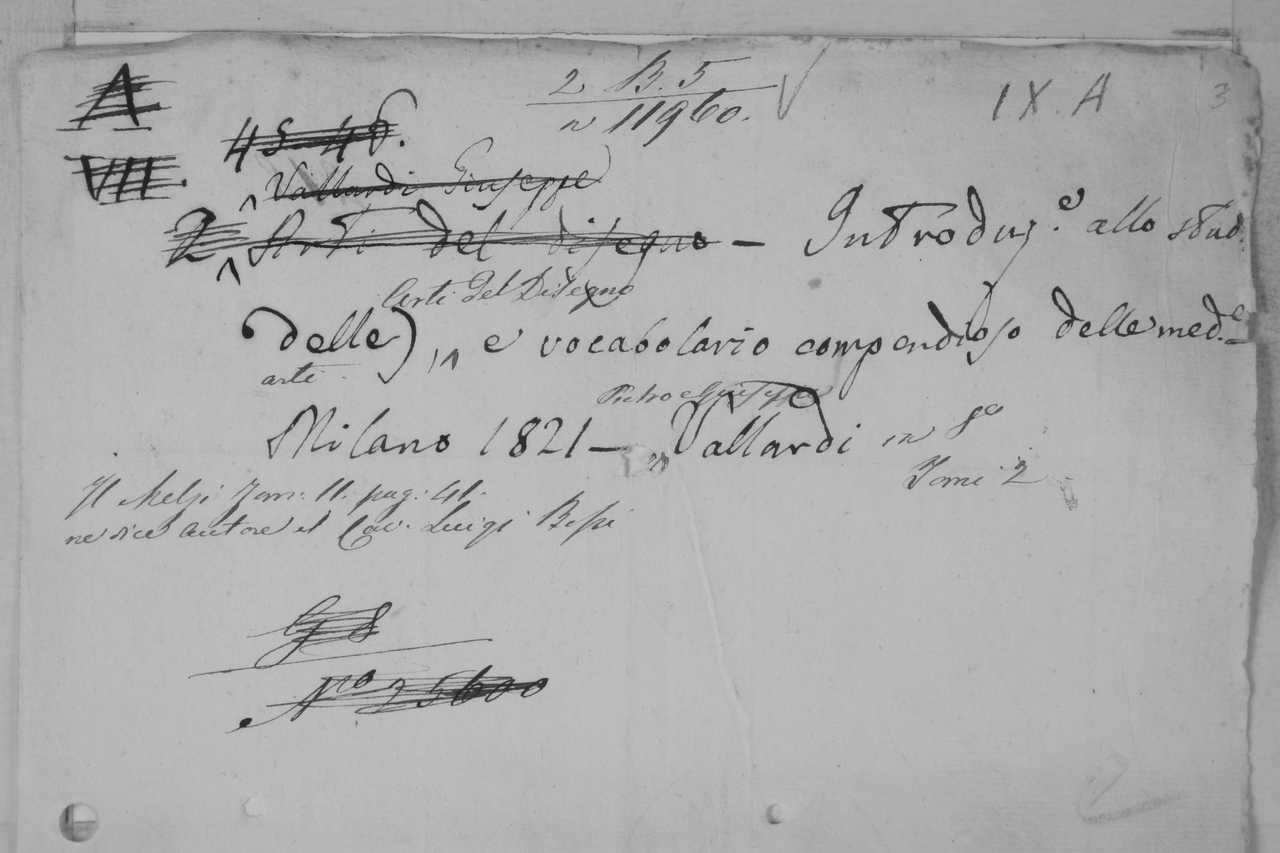 A
VII.
45-46.
2 B. 5
n 11960.
IX. A
3
Vallardi Giuseppe
2 Arti del disegno — Introduz.e allo stud.
Arti del Disegno
delle), e vocabolario compendioso delle med.e
arti
Pietro e Giuseppe
Milano 1821 — Vallardi in 8o
Tomi 2
Il Melzi Tom: II. pag: 41.
ne dice autore il Cav. Luigi Bossi
G 8
No 25600